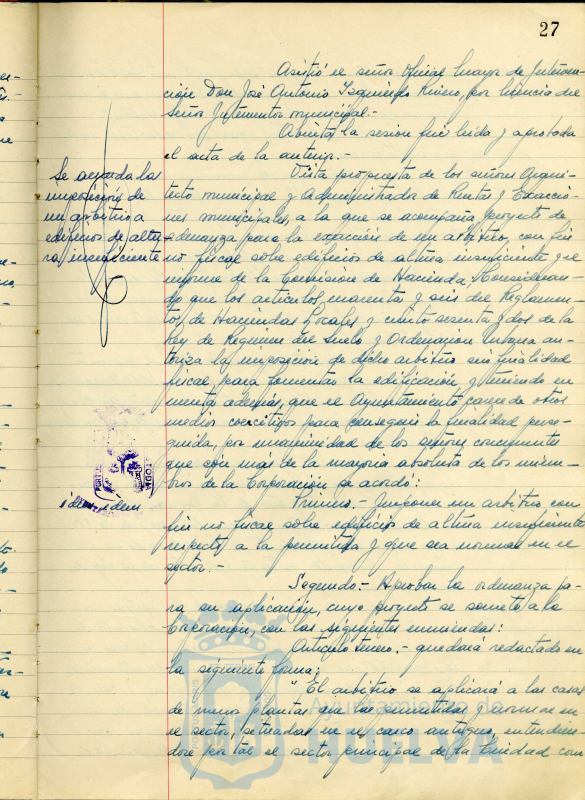 27
Asistió el señor Oficial Mayor de Interven-
ción Don José Antonio Izquierdo Rivero, por licencia del
señor Interventor municipal.-
Abierta la sesión fue leída y aprobada
el acta de la anterior.-
Se acuerda las
imposición de
un arbitrio a
edificios de altu-
ra insuficiente
Vista propuesta de los señores Arqui-
tecto municipal y Administrador de Rentas y Exaccio-
nes municipales, a la que se acompaña proyecto de
ordenanza para la exacción de un arbitrio, con fin
no fiscal sobre edificios de altura insuficiente que
informe de la Comisión de Hacienda, Consideran-
do que los artículos, cuarenta y seis del Reglamen-
to, de Haciendas Locales y ciento sesenta y dos de la
Ley de Régimen del Suelo y Ordenación urbana au-
toriza la imposición de dicho arbitrio sin finalidad
fiscal, para fomentar la edificación y teniendo en
cuenta además, que el Ayuntamiento carece de otros
medios coercitivos para conseguir la finalidad perse-
guida, por unanimidad de los señores concurrentes
que son más de la mayoría absoluta de los miem-
bros de la Corporación se acordó:
Primero.- Imponer un arbitrio con
fin no fiscal sobre edificios de altura insuficiente
respecto a la permitida y que sea normal en el
sector.-
Segundo.- Aprobar la ordenanza pa-
ra su aplicación, cuyo proyecto se somete a la
Corporación, con las siguientes enmiendas:
Artículo tercero.- quedará redactado en
la siguiente forma:
"El arbitrio se aplicará a las casas
de menos plantas que las permitidas y normal en
el sector, situadas en el casco antiguo, entendien-
dose por tal el sector principal de la Ciudad com
Ayuntamiento de
HUELVA